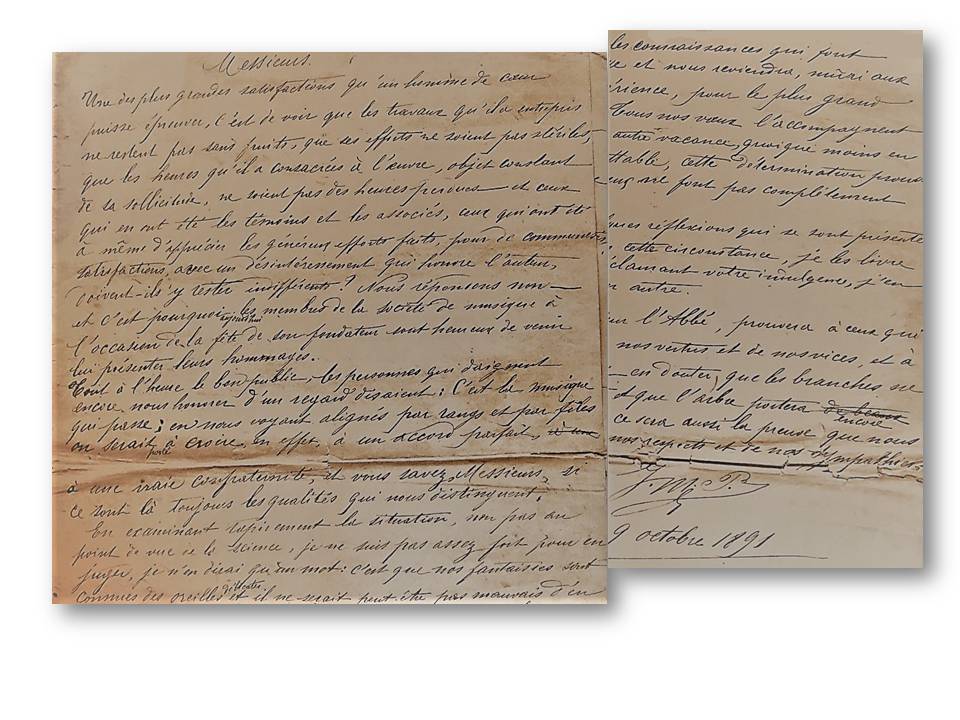 Messieurs.
Une des plus grandes satisfactions qu'un homme de cœur
puisse éprouver, c'est de voir que les travaux qu'il a entrepris
ne restent pas sans fruits, que ses efforts ne soient pas stériles,
que les heures qu'il a consacrées à l'œuvre, objet constant
de sa sollicitude, ne soient pas des heures perdues — et ceux
qui en ont été les témoins et les associés, ceux qui ont été
à même d'apprécier les généreux efforts faits, pour de
satisfactions, avec un désintéressement qui honore l'auteur,
doivent-ils y rester indifférents? Nous répondons non —
et c'est pourquoi aujourd'hui les membres de la société de musique à
l'occasion de la fête de son fondateur sont heureux de venir
lui présenter leurs hommages.
Tout à l'heure le bon public, les personnes qui daignent
encore nous honorer d'un regard disaient: C'est la musique
qui passe; en nous voyant alignés par rangs et par files
on serait porté à croire, en effet, à un accord parfait,
à une vraie confraternité, et vous savez, Messieurs, si
ce sont là toujours les qualités qui nous distinguent.
En examinant la situation, non pas au
point de vue de la science, je ne suis pas assez fort pour en
juger, je n'en dirai qu'un mot: c'est que nos fantaisies sont
connues des oreilles délicates et il ne serait peut-être pas mauvais d'en
les connaissances qui font
et nous reviendra, mûri aux
rience, pour le plus grand
Tous nos vœux l'accompagnent
autre vacance, quoique moins en
ttable, cette détermination
ne font pas complètement
ues réflexions qui se sont présenté
cette circonstance, je les livre
clamant votre indulgence, j'en
autre.
l'Abbé, prouvera à ceux qui
nos vertus et de nos vices, et à
en douter, que les branches ne
t que l'arbre portera encore
ce sera aussi la preuve que nous
nos respects et de nos sympathies.
9 octobre 1891